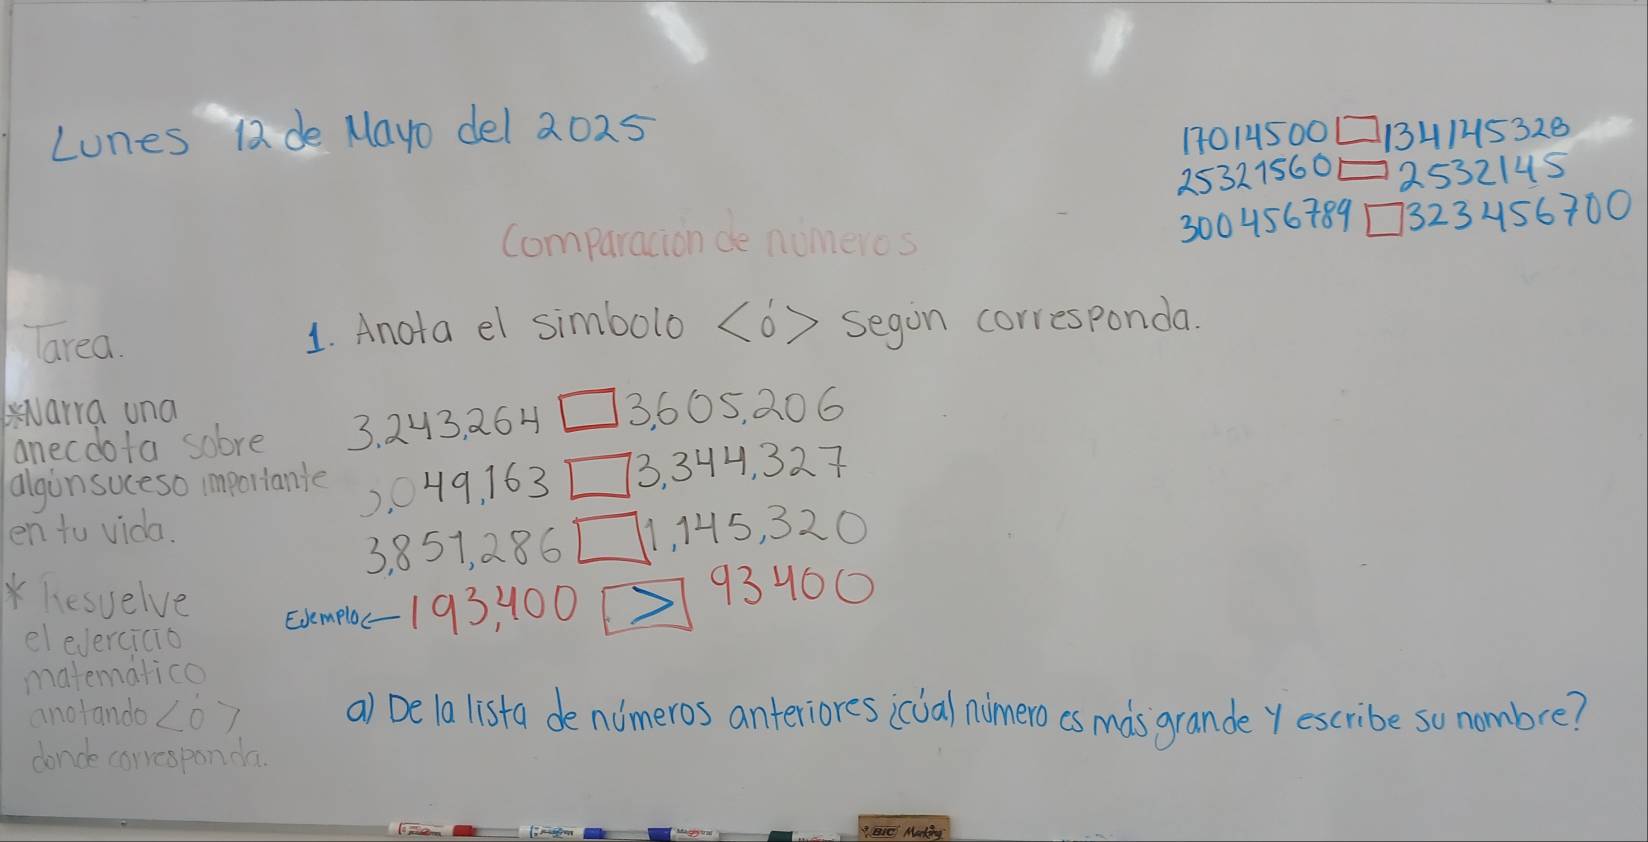 Lunes 12 de Mayo del 2025
17014500 134145328
25321560 2532145
300456789 323456700
Comparación de números
1. Anota el simbolo <ó> según corresponda.
3,243,264 3,605,206
3,049,163 3,344,327
3,851,286 1,145,320
Ejemplo 193,400 > 93400
a) De la lista de números anteriores ¿cúal número es más grande y escribe su nombre?
Tarea.
*Narra una
anecdota sobre
algún suceso importante
en tu vida.
* Resuelve
el ejercicio
matemático
anotando <ó>
donde corresponda.
BIC Marking